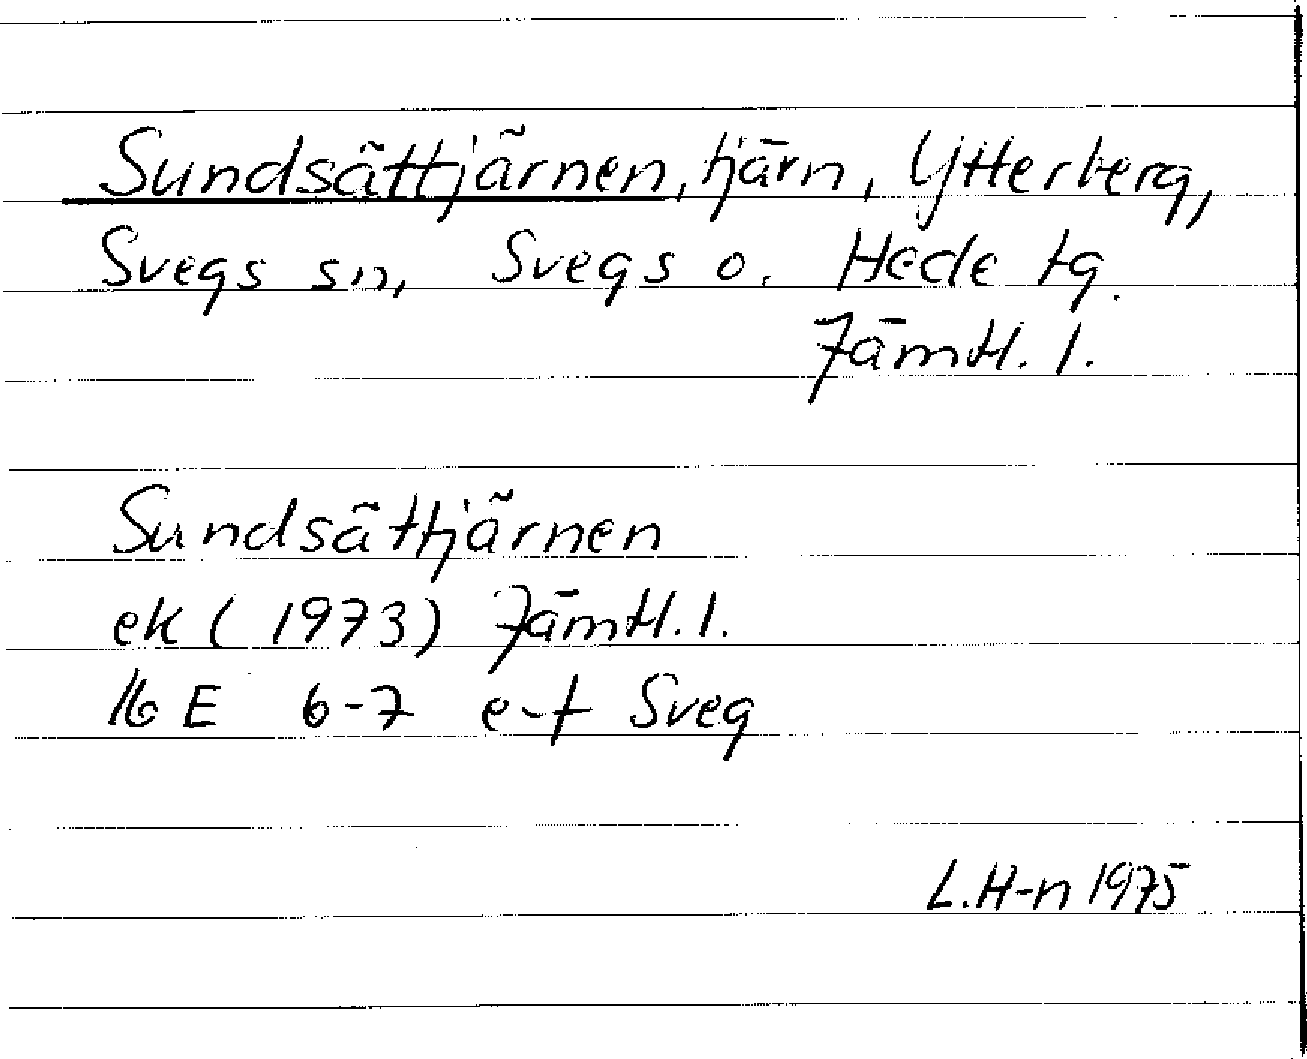 Sundsättjärnen, tjärn, Ytterberg,
Svegs sn, Svegs o. Hede tg.
Jämtl. l.
Sundsättjärnen
ek (1973) Jämtl. l.
16 E 6-7 e-f Sveg
L.H-n 1975